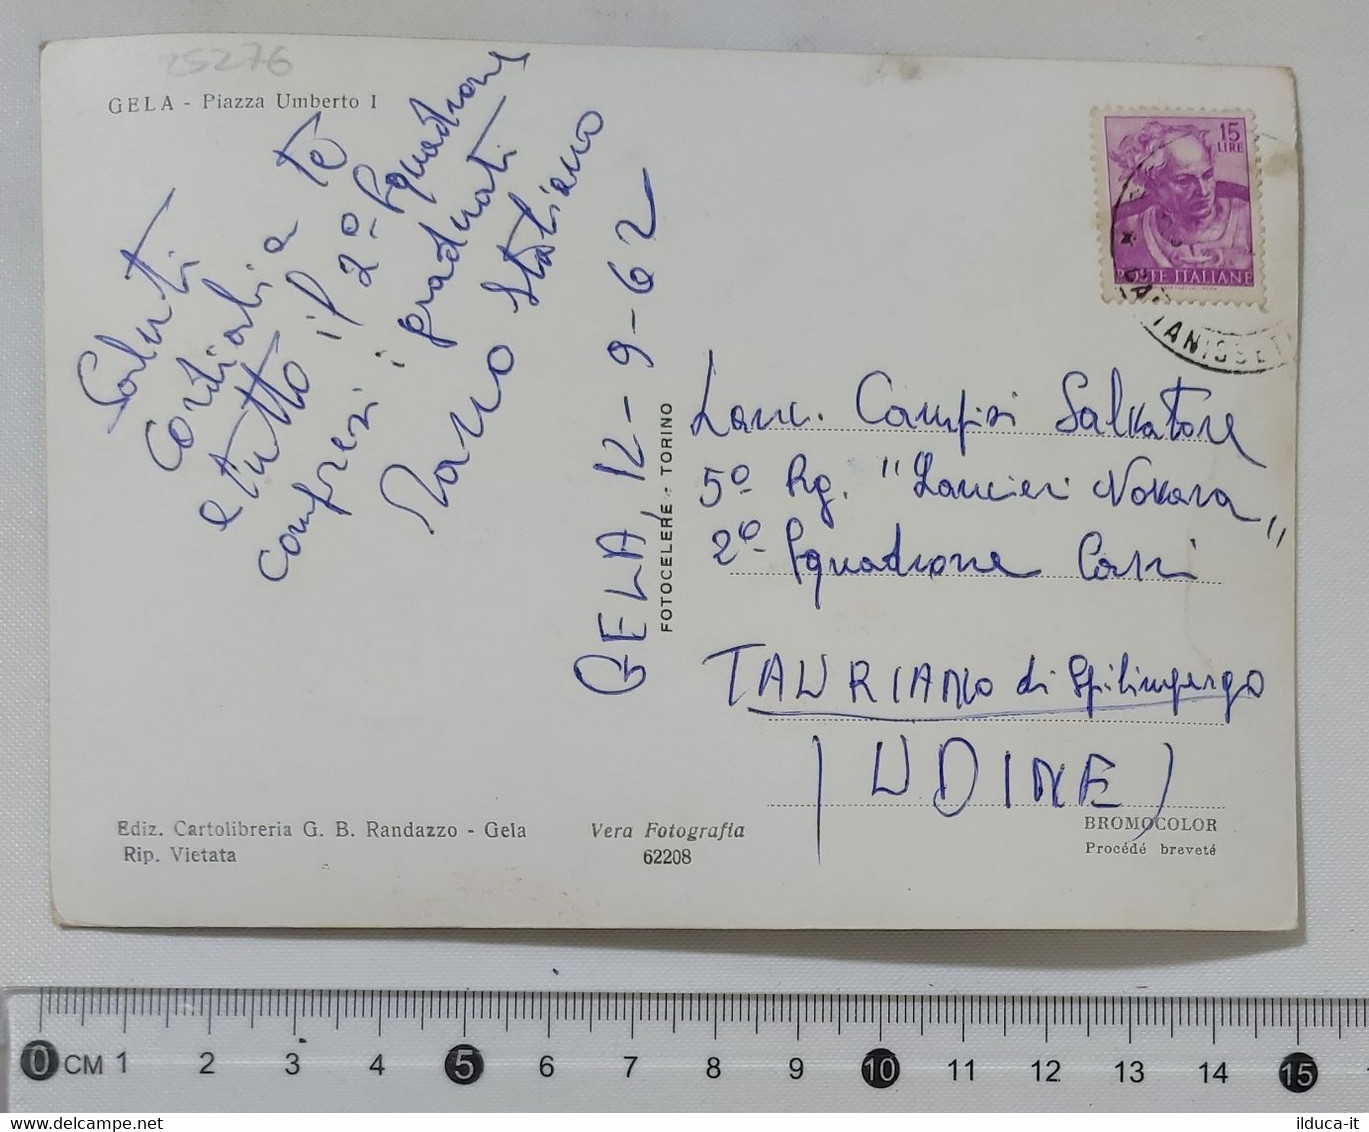 25276
GELA - Piazza Umberto I
Saluti
Cordiali a te
e tutto il 2º Squadrone
compresi i graduati
Stabiano
GELA, 12-9-62
FOTOCELERE - TORINO
15
LIRE
POSTE ITALIANE
Lanc. Campisi Salvatore
5º Rg. "Lancieri Novara"
2º Squadrone Carri
TAURIANO di Spilimpergo
(UDINE)
Ediz. Cartolibreria G. B. Randazzo - Gela
Rip. Vietata
Vera Fotografia
62208
BROMOCOLOR
Procédé breveté
0 CM 1 2 3 4 5 6 7 8 9 10 11 12 13 14 15
ilduca-it